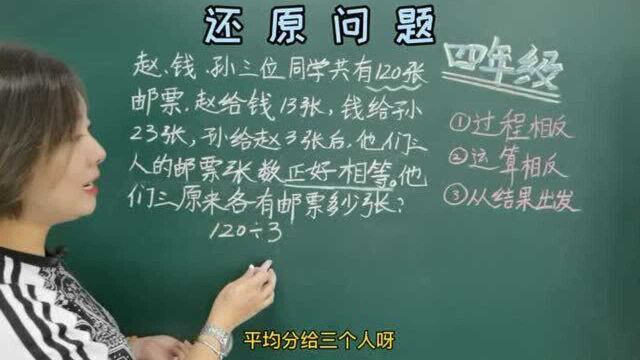 还原问题
四年级
赵、钱、孙三位同学共有120张
邮票.赵给钱13张,钱给孙
23张,孙给赵3张后,他们三
人的邮票张数正好相等。他
们三原来各有邮票多少张?
120÷3
①过程相反
②运算相反
③从结果出发
平均分给三个人呀